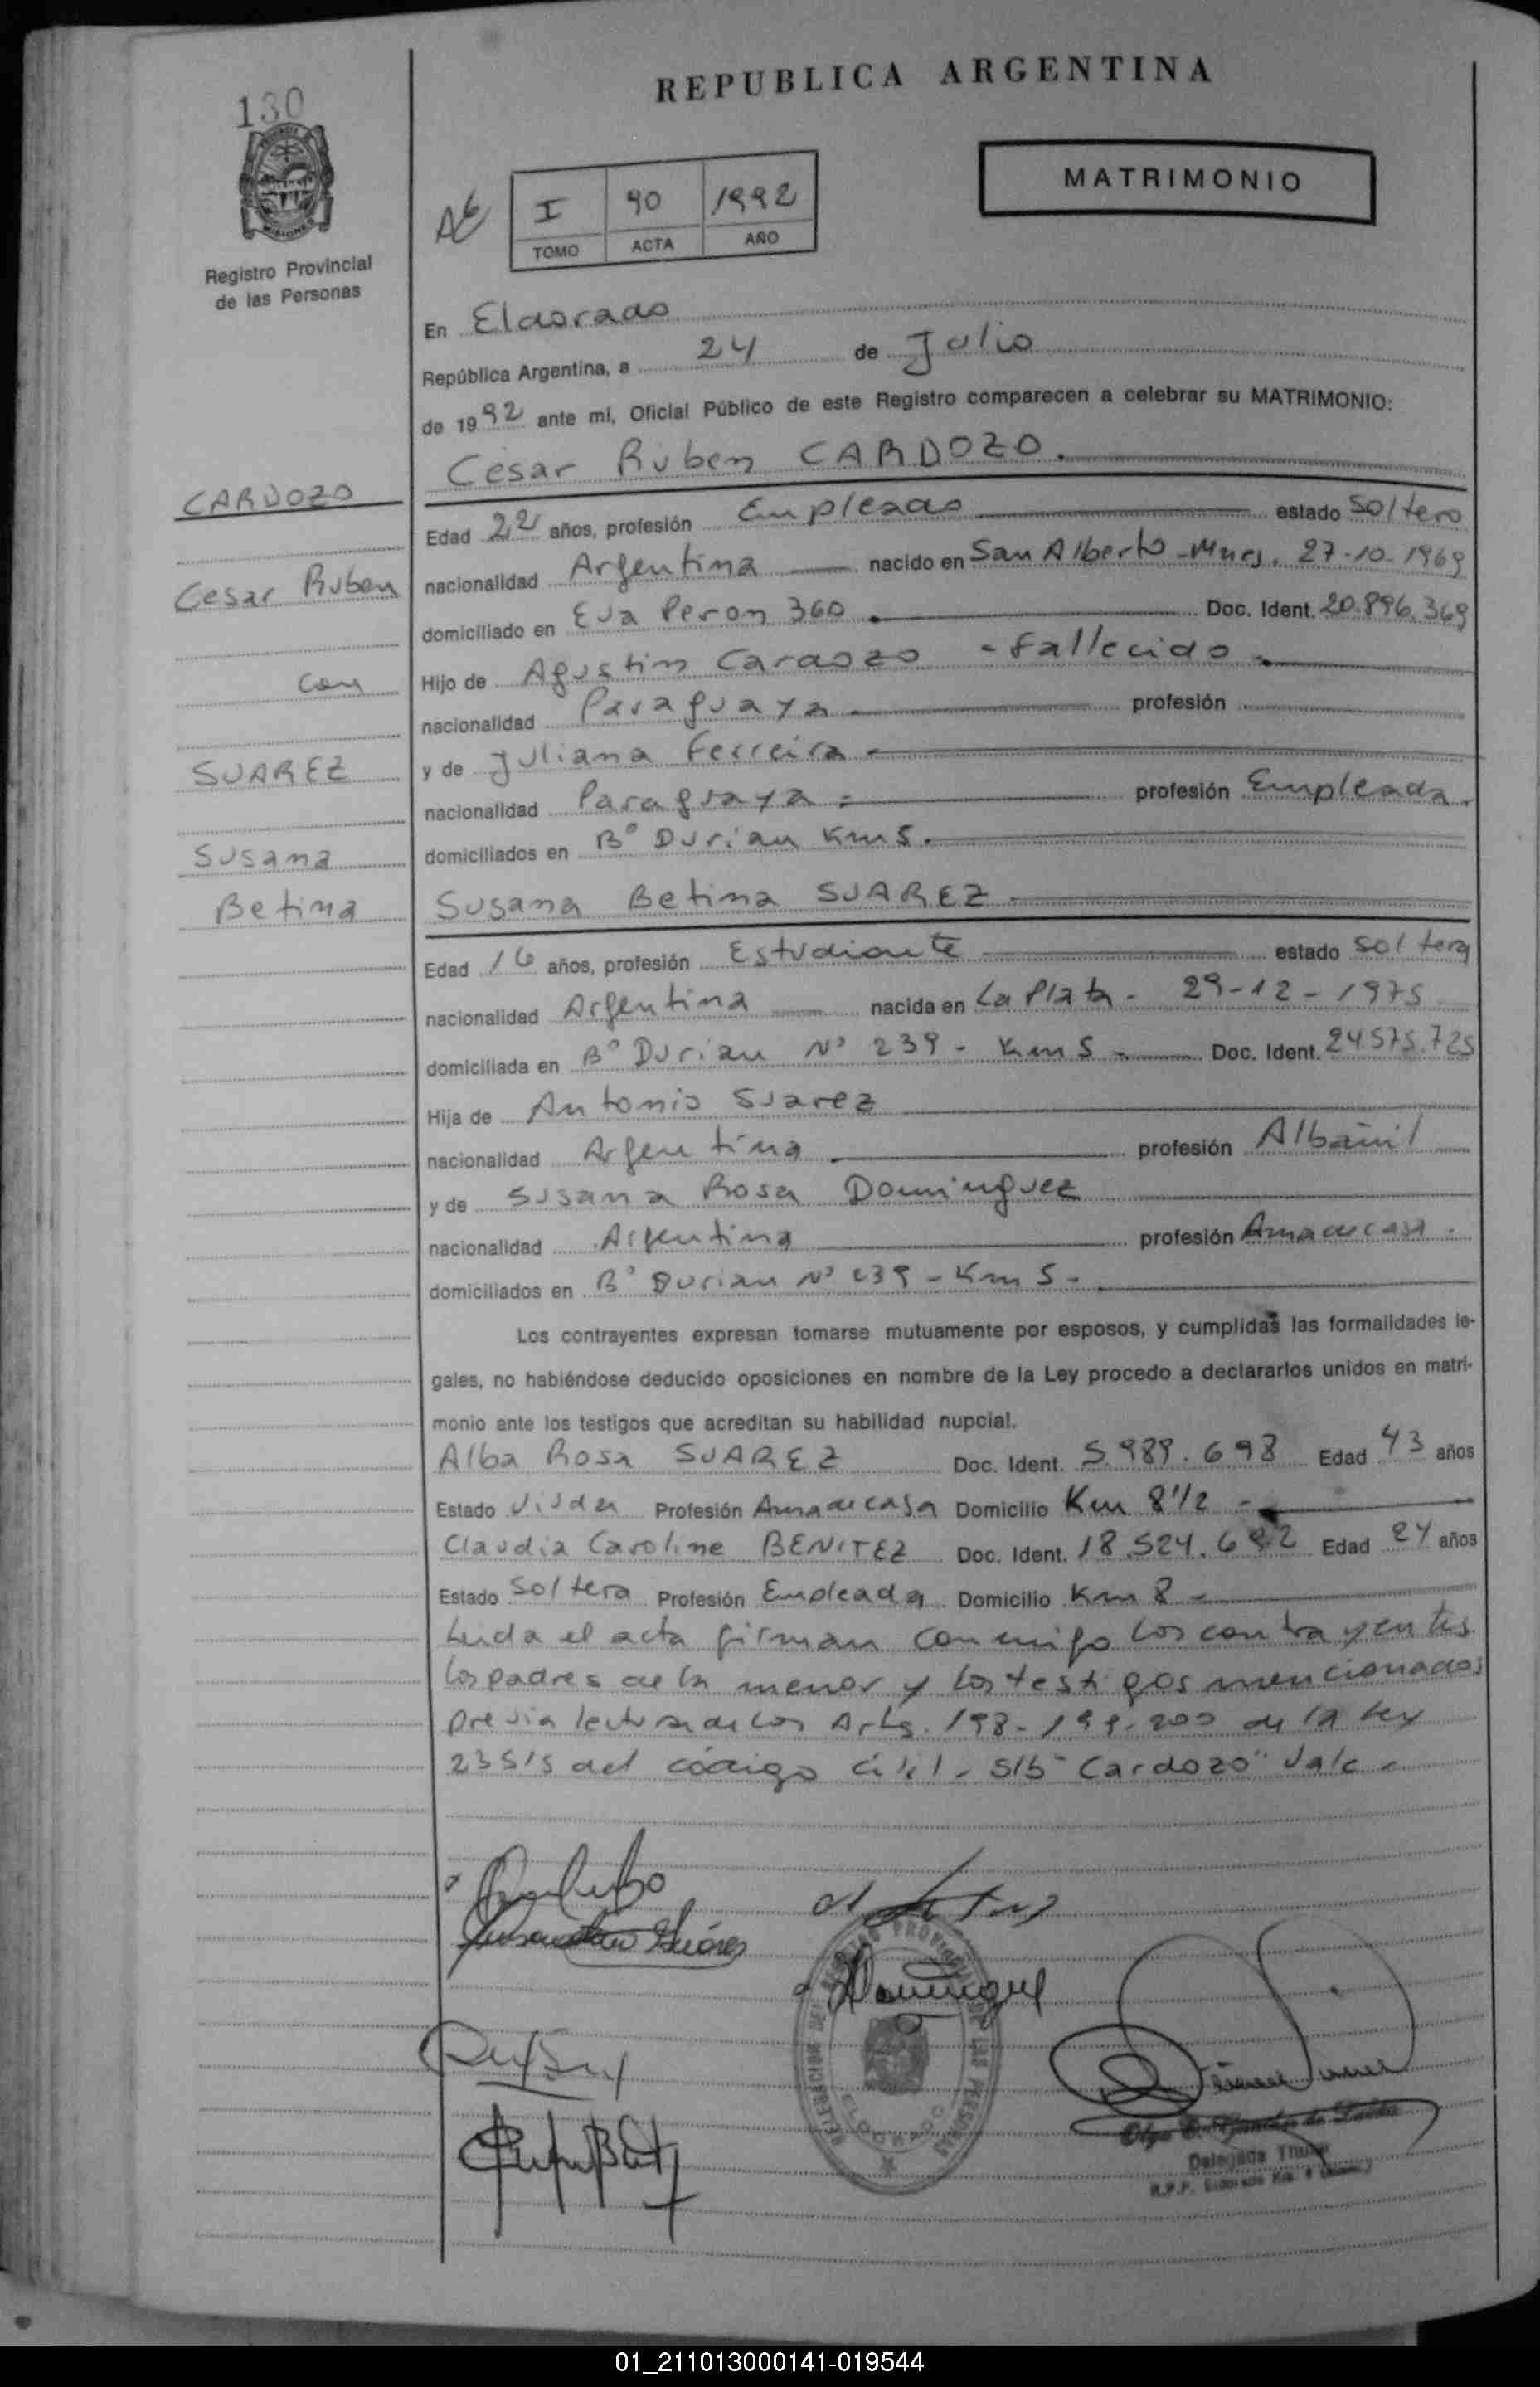 REPUBLICA ARGENTINA
130
MATRIMONIO
I 90 1992
TOMO ACTA AÑO
Registro Provincial
de las Personas
En Eldorado
República Argentina, a 24 de Julio
de 1992 ante mí, Oficial Público de este Registro comparecen a celebrar su MATRIMONIO:
Cesar Ruben CARDOZO.
CARDOZO
Edad 22 años, profesión Empleado estado Soltero
Cesar Ruben
nacionalidad Argentina nacido en San Alberto - Mnes. 27-10-1969
domiciliado en Eva Peron 360 Doc. Ident. 20.896.369
con
Hijo de Agustin Cardozo - Fallecido
nacionalidad Paraguaya profesión
SUAREZ
y de Juliana Ferreira
nacionalidad Paraguaya profesión Empleada.
Susana
domiciliados en Bº Durian Km 5.
Betina
Susana Betina SUAREZ
Edad 16 años, profesión Estudiante estado Soltera
nacionalidad Argentina nacida en La Plata - 29-12-1975
domiciliada en Bº Durian Nº 239 - Km 5 - Doc. Ident. 24.575.725
Hija de Antonio Suarez
nacionalidad Argentina profesión Albañil
y de Susana Rosa Dominguez
nacionalidad Argentina profesión Ama de casa.
domiciliados en Bº Durian Nº 239 - Km 5 -
Los contrayentes expresan tomarse mutuamente por esposos, y cumplidas las formalidades le-
gales, no habiéndose deducido oposiciones en nombre de la Ley procedo a declararlos unidos en matri-
monio ante los testigos que acreditan su habilidad nupcial.
Alba Rosa SUAREZ Doc. Ident. 5.989.698 Edad 43 años
Estado Viuda Profesión Ama de casa Domicilio Km 8 1/2 -
Claudia Caroline BENITEZ Doc. Ident. 18.524.692 Edad 24 años
Estado Soltera Profesión Empleada Domicilio Km 8 -
Leida el acta firman conmigo los contrayentes
los padres de la menor y los testigos mencionados
previa lectura de los Arts. 198-199-200 de la Ley
23515 del código civil - S/b "Cardozo" Vale -
Dominguez
DELEGACION DEL REGISTRO PROVINCIAL DE LAS PERSONAS
ELDORADO
Delegada Titular
R.P.P. Eldorado Km.
01_211013000141-019544